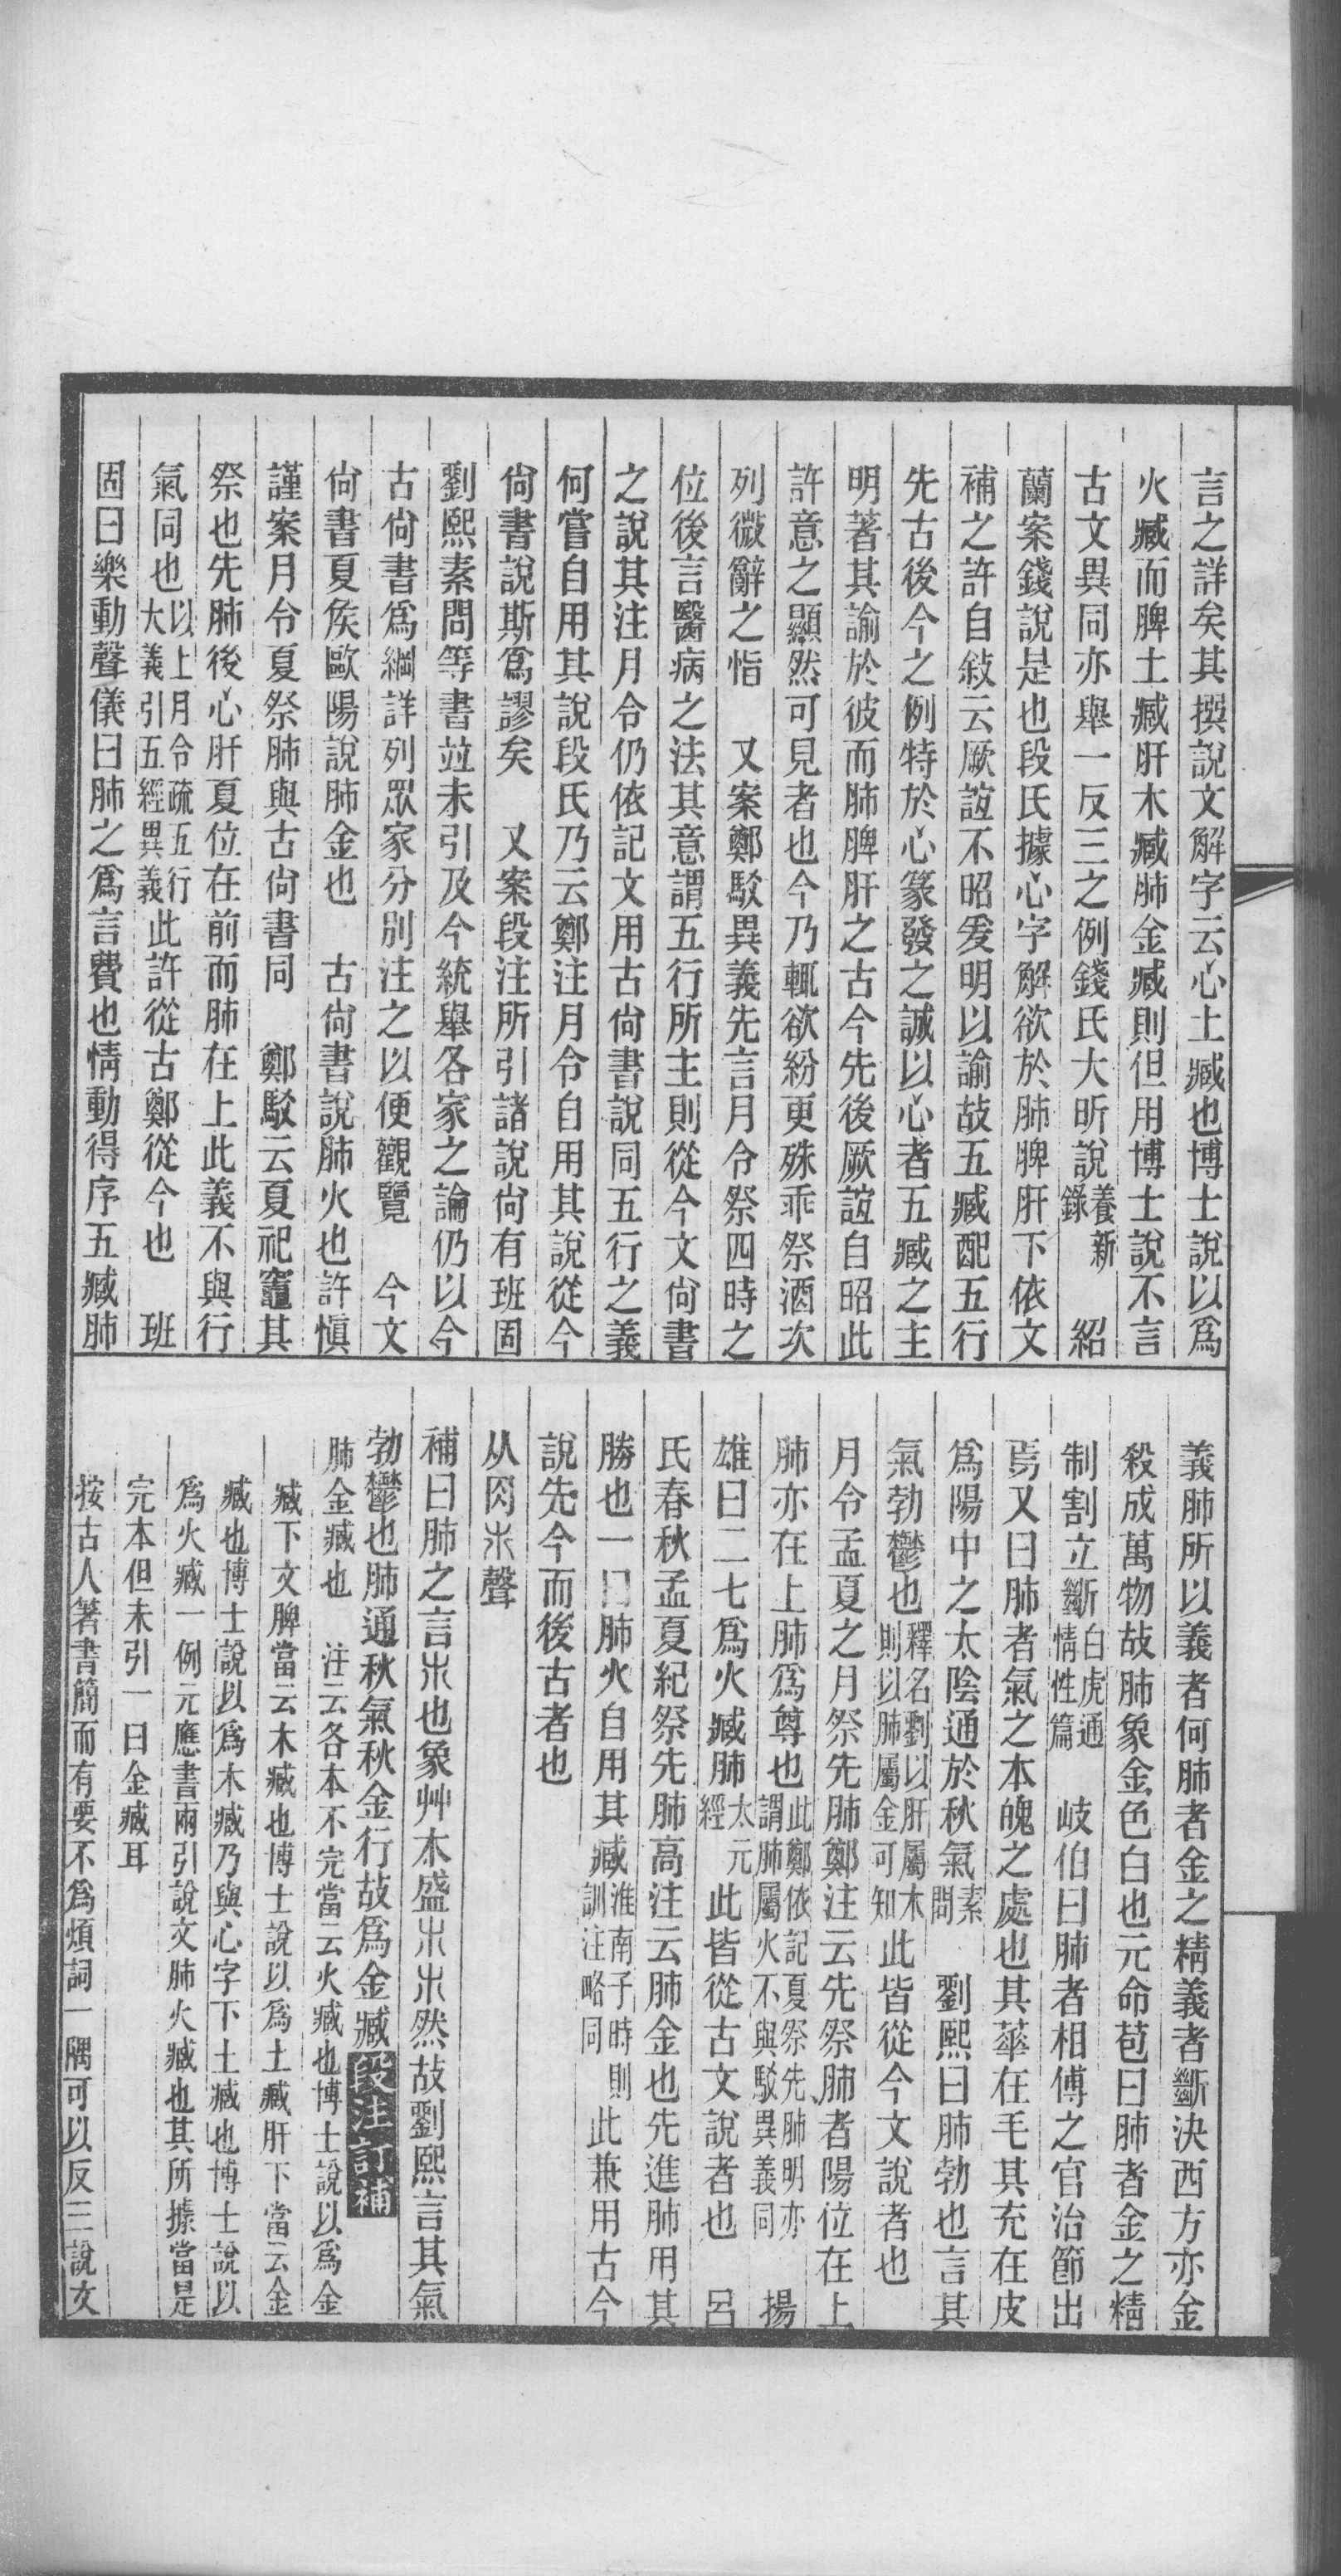 言之詳矣其撰說文解字云心土臧也博士說以爲
火臧而脾土臧肝木臧肺金臧則但用博士說不言
古文異同亦舉一反三之例錢氏大昕說養新錄　紹
蘭案錢說是也段氏據心字解欲於肺脾肝下依文
補之許自敍云厥誼不昭爰明以諭故五臧配五行
先古後今之例特於心篆發之誠以心者五臧之主
明著其諭於彼而肺脾肝之古今先後厥誼自昭此
許意之顯然可見者也今乃輒欲紛更殊乖祭酒次
列微辭之恉　又案鄭駁異義先言月令祭四時之
位後言醫病之法其意謂五行所主則從今文尙書
之說其注月令仍依記文用古尙書說同五行之義
何嘗自用其說段氏乃云鄭注月令自用其說從今
尙書說斯爲謬矣　又案段注所引諸說尙有班固
劉熙素問等書竝未引及今統舉各家之論仍以今
古尙書爲綱詳列眾家分別注之以便觀覽　今文
尙書夏矦歐陽說肺金也　古尙書說肺火也許愼
謹案月令夏祭肺與古尙書同　鄭駁云夏祀竈其
祭也先肺後心肝夏位在前而肺在上此義不與行
氣同也以上月令疏五行大義引五經異義此許從古鄭從今也　班
固曰樂動聲儀曰肺之爲言費也情動得序五臧肺
義肺所以義者何肺者金之精義者斷決西方亦金
殺成萬物故肺象金色白也元命苞曰肺者金之精
制割立斷白虎通情性篇　岐伯曰肺者相傅之官治節出
焉又曰肺者氣之本魄之處也其華在毛其充在皮
爲陽中之太陰通於秋氣素問　劉熙曰肺勃也言其
氣勃鬱也釋名劉以肝屬木則以肺屬金可知此皆從今文說者也
月令孟夏之月祭先肺鄭注云先祭肺者陽位在上
肺亦在上肺爲尊也此鄭依記夏祭先肺明亦謂肺屬火不與駁異義同　揚
雄曰二七爲火臧肺太元經　此皆從古文說者也　呂
氏春秋孟夏紀祭先肺高注云肺金也先進肺用其
勝也一曰肺火自用其臧淮南子時則訓注略同　此兼用古今
說先今而後古者也
从肉巿聲
補曰肺之言巿也象艸木盛巿巿然故劉熙言其氣
勃鬱也肺通秋氣秋金行故爲金臧段注訂補
肺金臧也　注云各本不完當云火臧也博士說以爲金
臧下文脾當云木臧也博士說以爲土臧肝下當云金
臧也博士說以爲木臧乃與心字下土臧也博士說以
爲火臧一例元應書兩引說文肺火臧也其所據當是
完本但未引一曰金臧耳
按古人箸書簡而有要不爲煩詞一隅可以反三說文